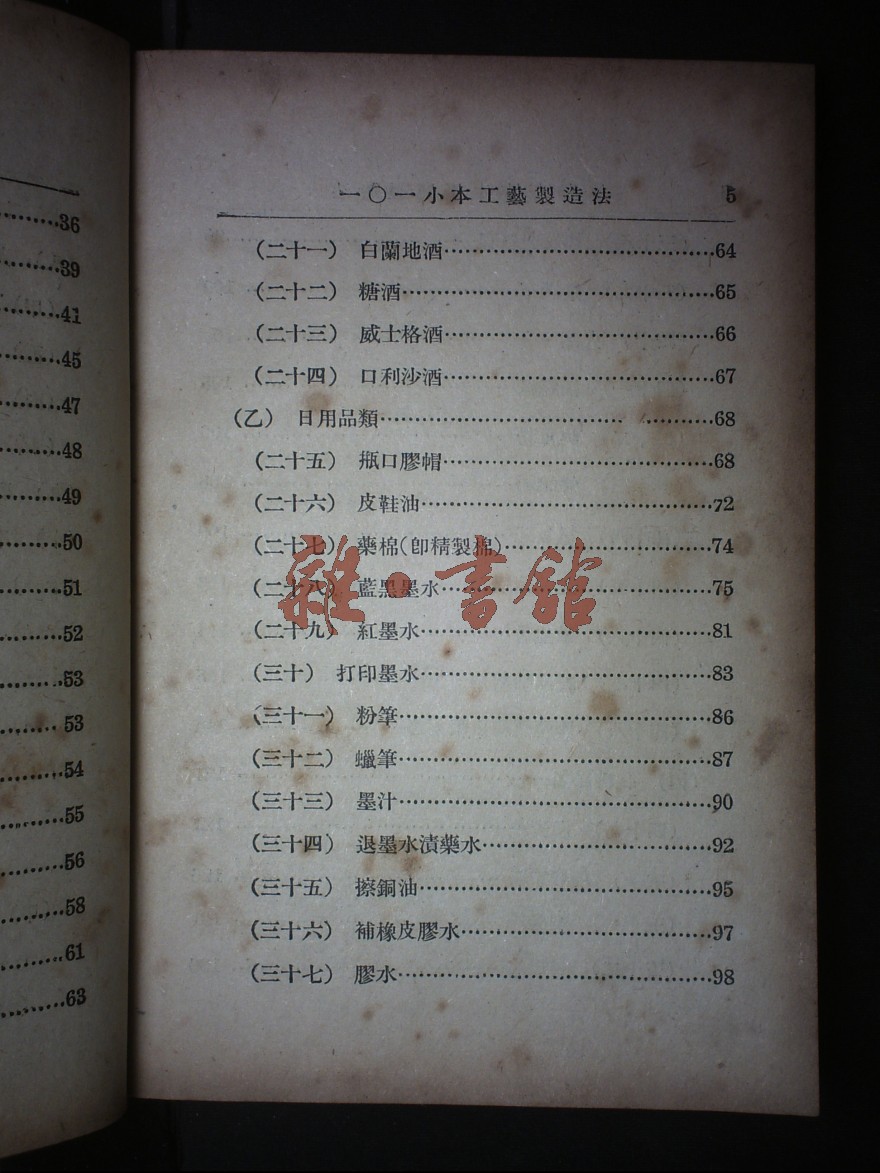 36
39
41
45
47
48
49
50
51
52
53
53
54
55
56
58
61
63
一〇一小本工藝製造法 5
(二十一) 白蘭地酒……64
(二十二) 糖酒……65
(二十三) 威士格酒……66
(二十四) 口利沙酒……67
(乙) 日用品類……68
(二十五) 瓶口膠帽……68
(二十六) 皮鞋油……72
(二十七) 藥棉(卽精製棉)……74
(二十八) 藍黑墨水……75
(二十九) 紅墨水……81
(三十) 打印墨水……83
(三十一) 粉筆……86
(三十二) 蠟筆……87
(三十三) 墨汁……90
(三十四) 退墨水漬藥水……92
(三十五) 擦銅油……95
(三十六) 補橡皮膠水……97
(三十七) 膠水……98
雜·書館